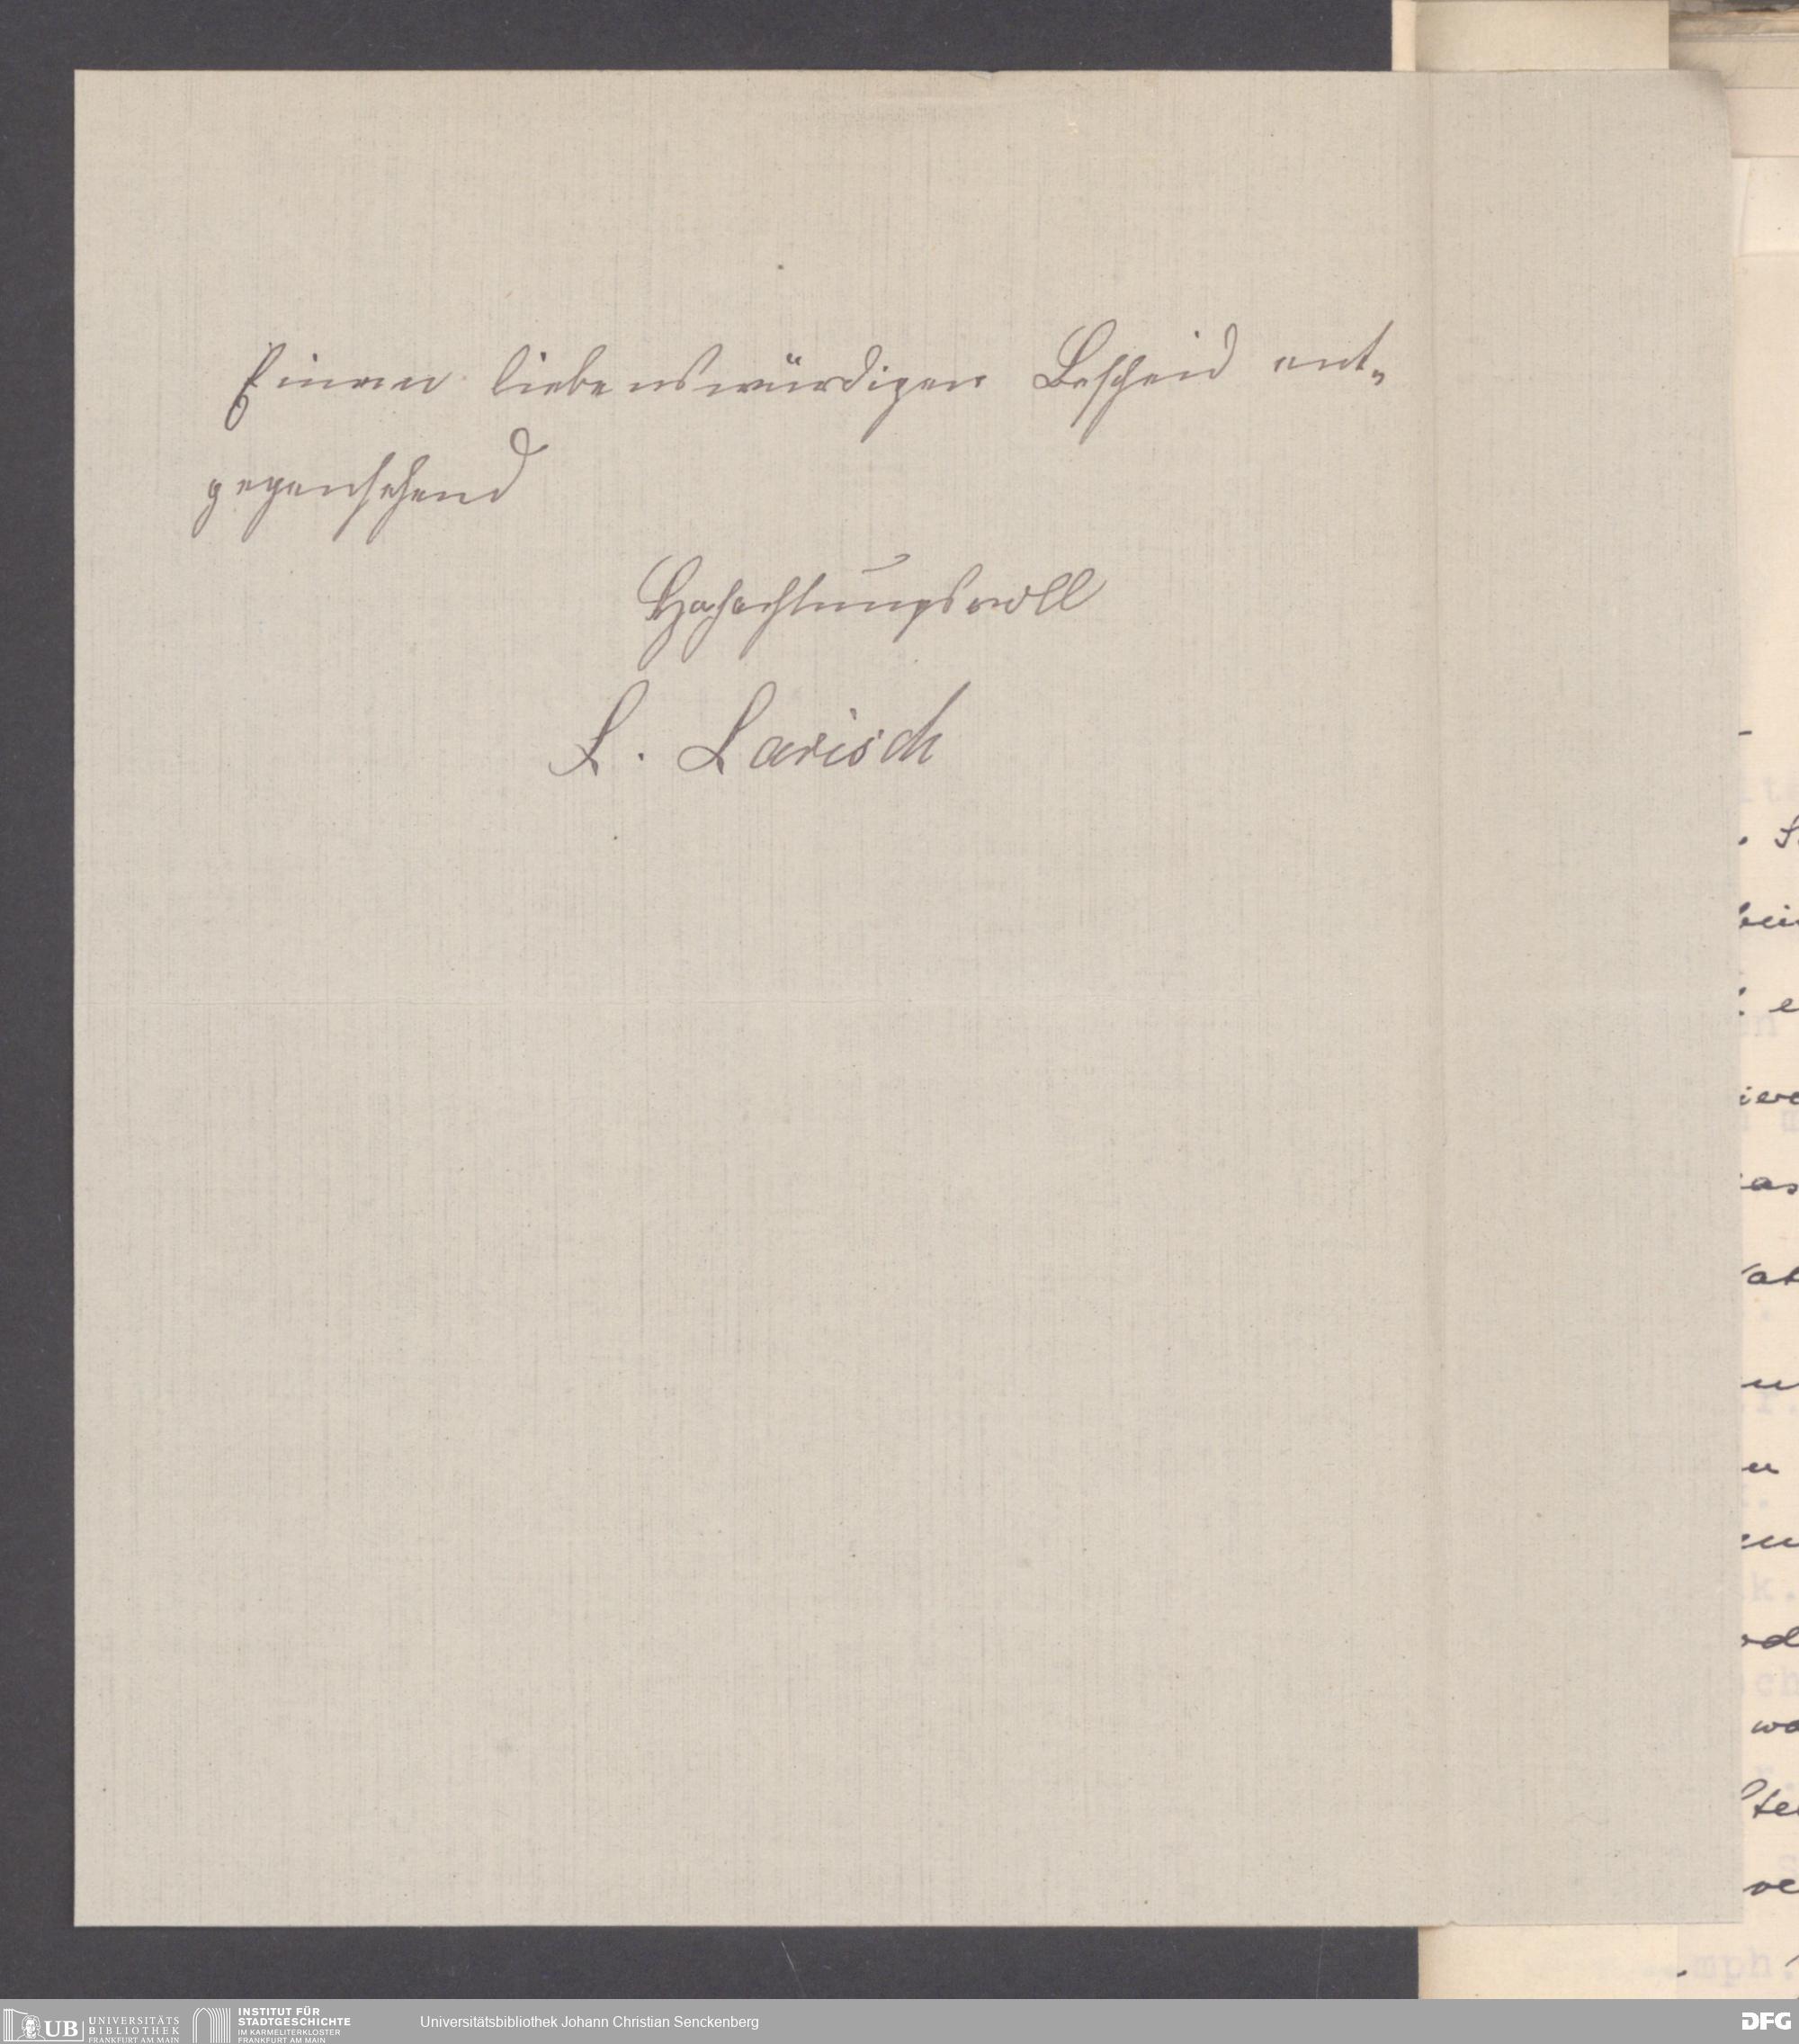 Einen liebenswürdigen Bescheid ent-
gegensehend
Hochachtungsvoll
L. Larisch
UB
UNIVERSITÄTS
BIBLIOTHEK
FRANKFURT AM MAIN
INSTITUT FÜR
STADTGESCHICHTE
IM KARMELITERKLOSTER
FRANKFURT AM MAIN
Universitätsbibliothek Johann Christian Senckenberg
DFG